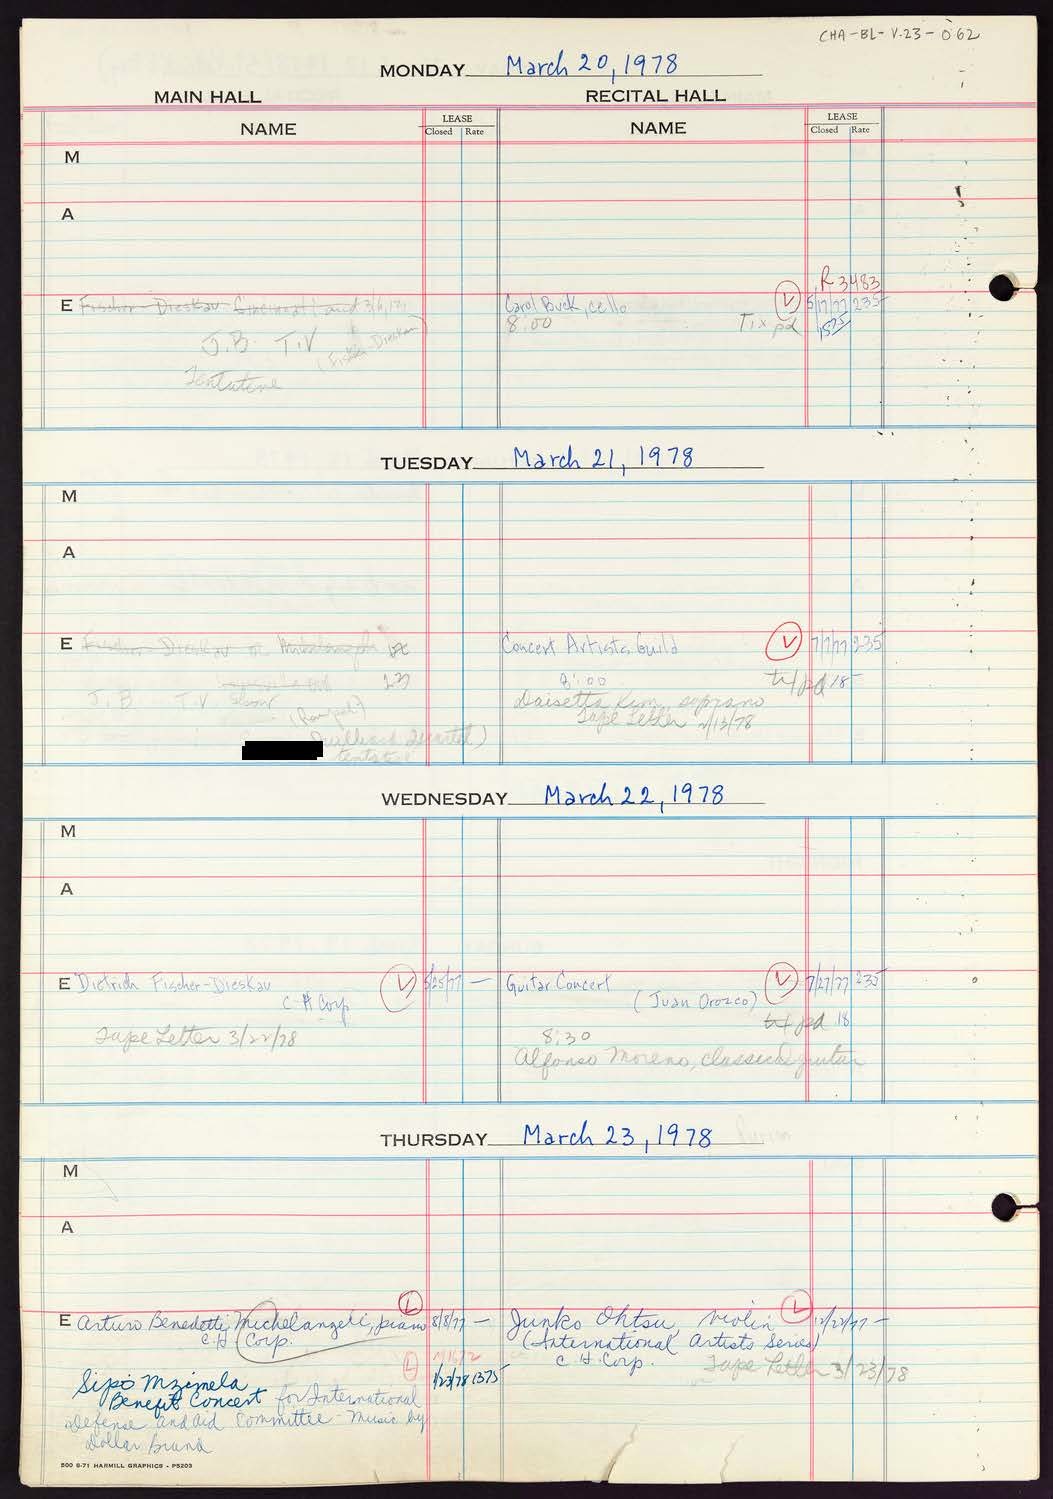 CHA-BL-V.23-062
MONDAY March 20, 1978
MAIN HALL RECITAL HALL
NAME LEASE Closed Rate NAME LEASE Closed Rate
M
A
R 3483
E Fischer-Dieskau Cincinnati and Carol Buck, cello 5/17/77 235
8:00 Tix pd 1575
J.B. T.V. (Fischer-Dieskau)
Tentative
TUESDAY March 21, 1978
M
A
E Fischer-Dieskau or Concert Artists Guild 7/7/77 235
8:00 tix pd 18
23
J.B. T.V. Show Daisetta Kim, soprano
(Rampal) Tape Letter 2/13/78
Juilliard Quartet)
tentative
WEDNESDAY March 22, 1978
M
A
E Dietrich Fischer-Dieskau L 5/25/77 — Guitar Concert L 7/27/77 235
C H Corp (Juan Orozco) tix pd 18
Tape Letter 3/22/78 8:30
Alfonso Moreno, classical guitar
THURSDAY March 23, 1978
M
A
E Arturo Benedetti Michelangeli, piano L 8/8/77 — Junko Ohtsu violin L 12/22/77 —
C.H. Corp. (International Artists Series)
C.H. Corp. Tape Letter 3/23/78
L
Sipo Mzimela 1/23/78 1375
Benefit Concert for International
Defense and Aid Committee - Music by
Dollar Brand
500 8-71 HARMILL GRAPHICS - P5203